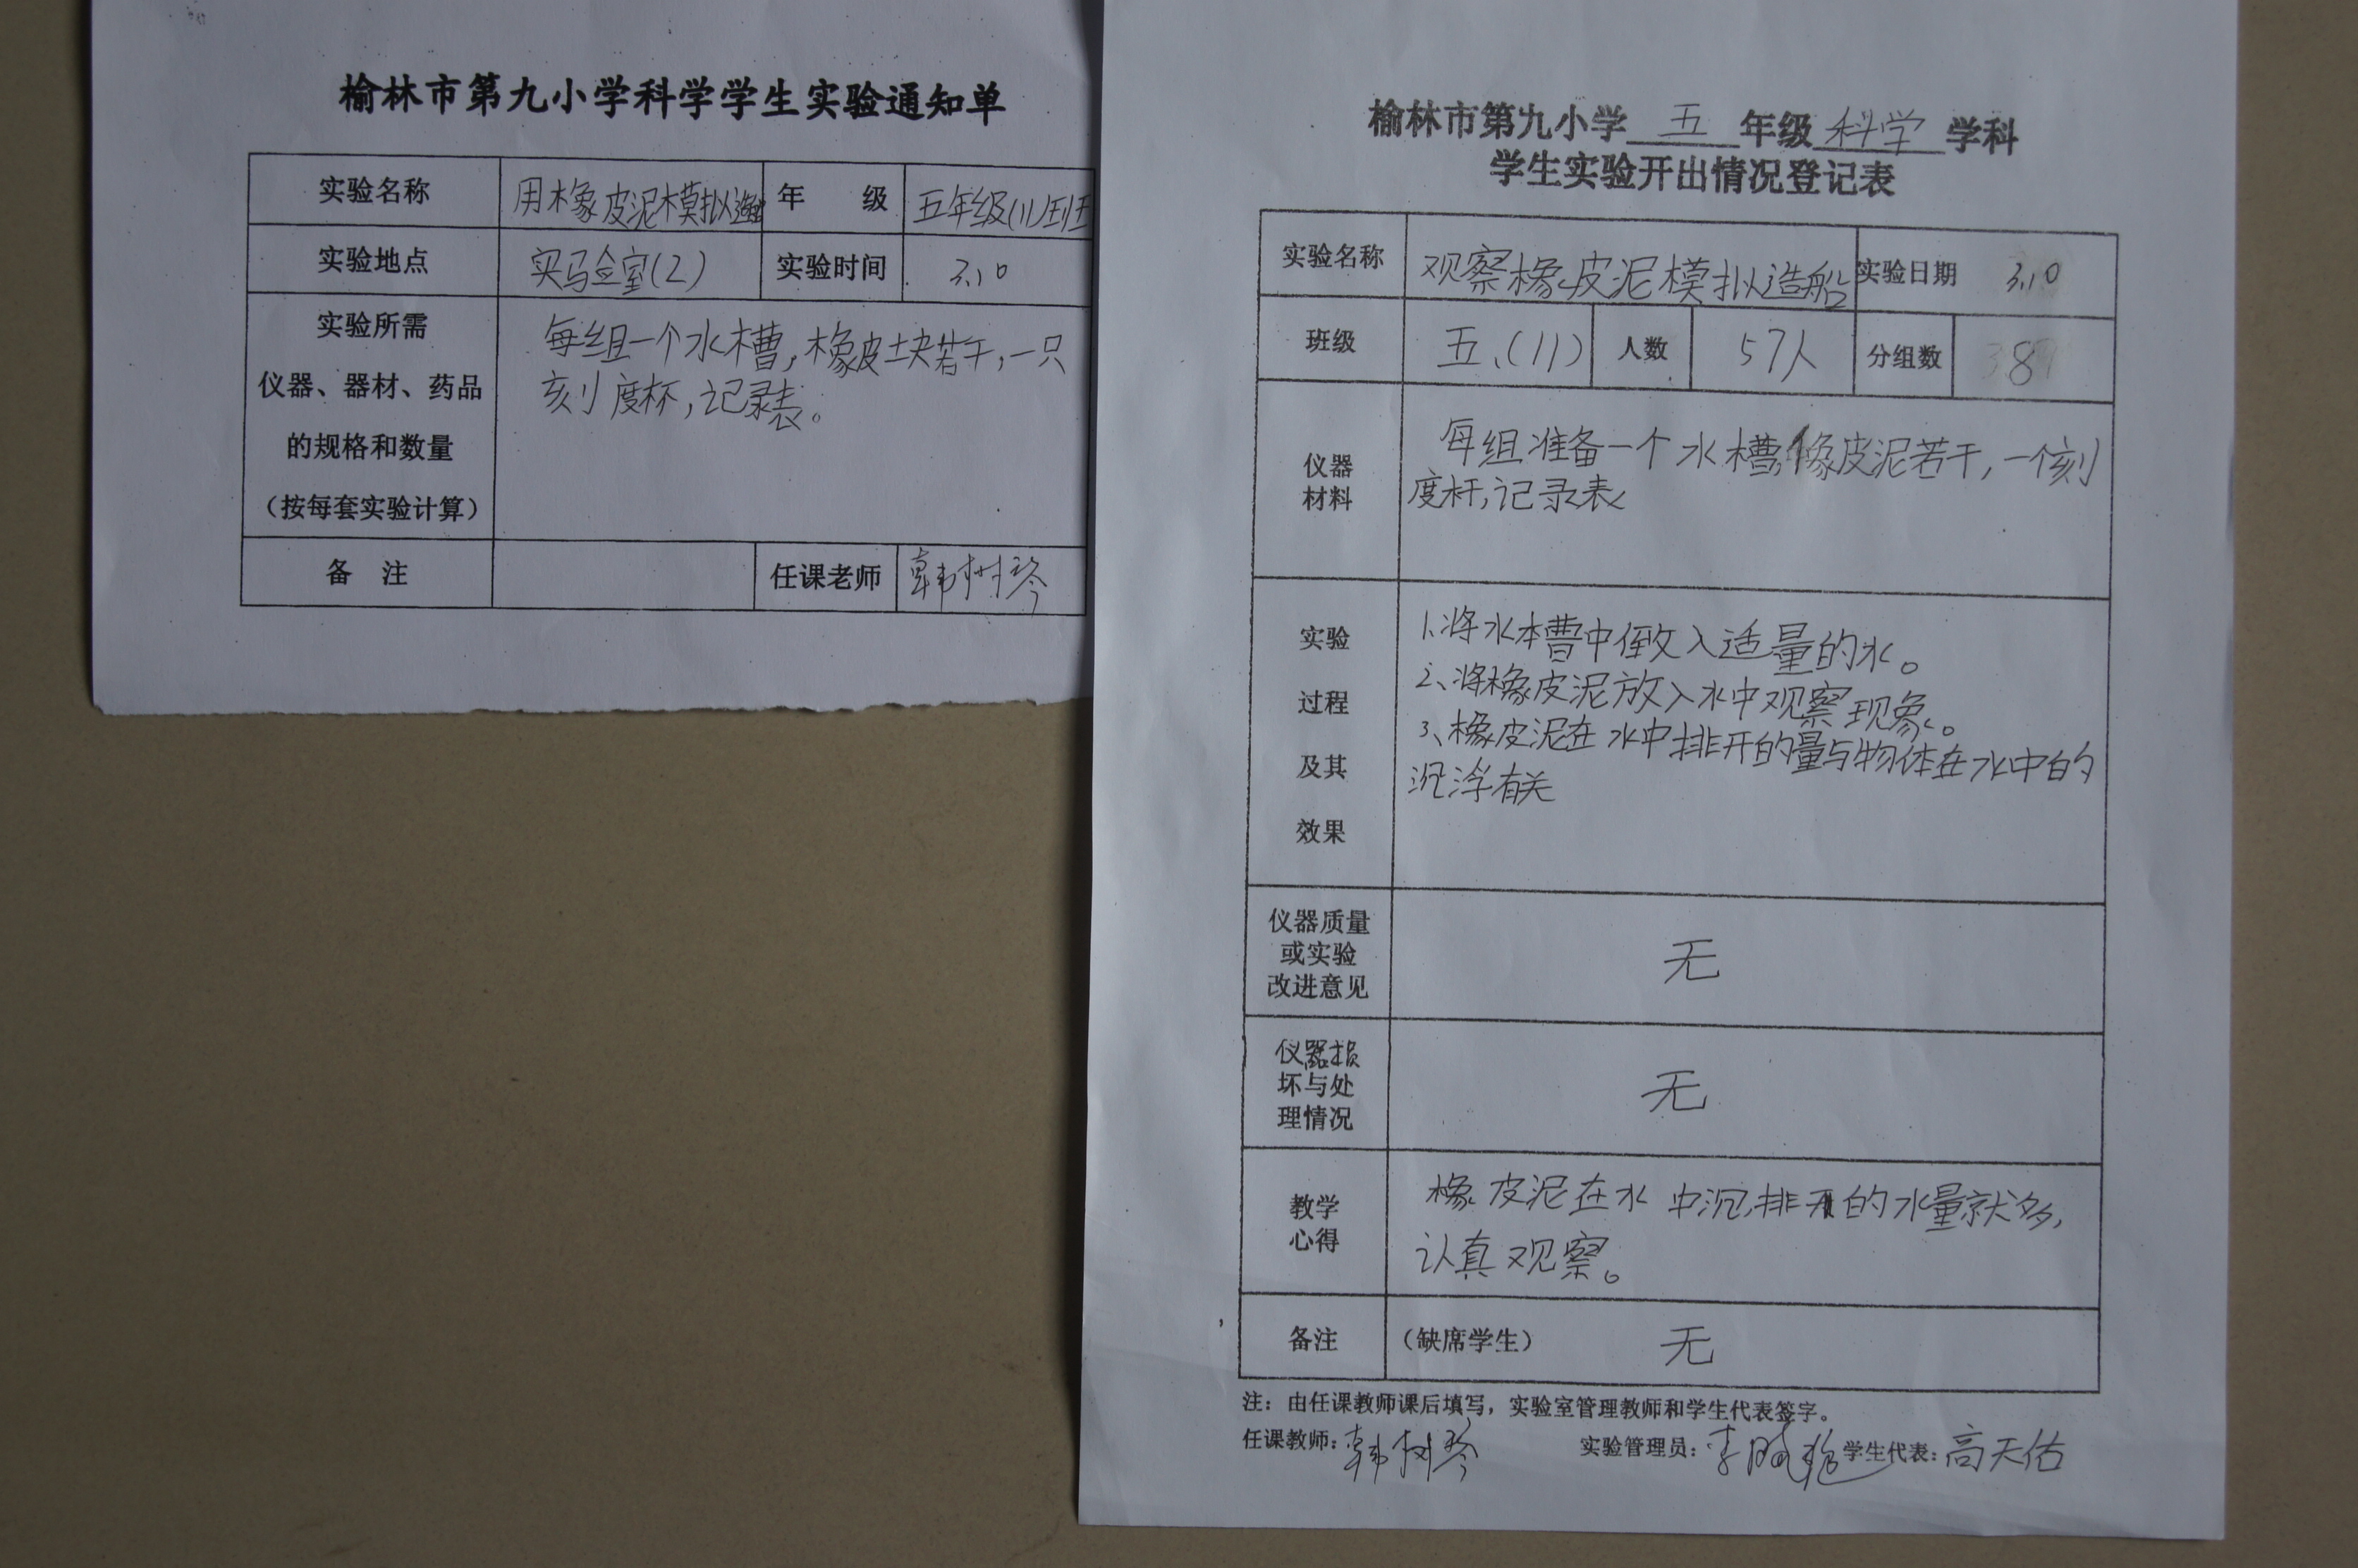 榆林市第九小学科学学生实验通知单
实验名称 用橡皮泥模拟造船 年 级 五年级(11)班
实验地点 实验室(2) 实验时间 3.10
实验所需
仪器、器材、药品
的规格和数量
（按每套实验计算）
每组一个水槽,橡皮块若干,一只
刻度杯,记录表。
备 注 任课老师 韩树琴
榆林市第九小学 五 年级 科学 学科
学生实验开出情况登记表
实验名称 观察橡皮泥模拟造船 实验日期 3.10
班级 五.(11) 人数 57人 分组数 8
仪器
材料
每组准备一个水槽,橡皮泥若干,一个刻
度杯,记录表
实验
过程
及其
效果
1、将水槽中倒入适量的水。
2、将橡皮泥放入水中观察现象。
3、橡皮泥在水中排开的量与物体在水中的
沉浮有关
仪器质量
或实验
改进意见
无
仪器损
坏与处
理情况
无
教学
心得
橡皮泥在水中沉,排开的水量就多,
认真观察。
备注 （缺席学生） 无
注：由任课教师课后填写，实验室管理教师和学生代表签字。
任课教师: 韩树琴 实验管理员: 李 学生代表: 高天佑